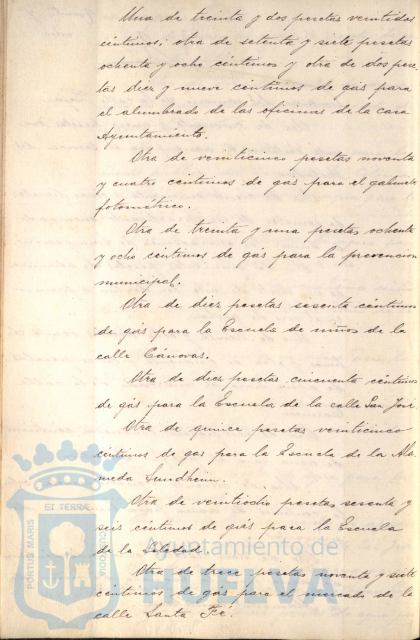 Una de treinta y dos pesetas veintidos
céntimos; otra de setenta y siete pesetas
ochenta y ocho céntimos y otra de dos pese
tas diez y nueve céntimos de gás para
el alumbrado de las oficinas de la casa
Ayuntamiento.
Otra de veinticinco pesetas noventa
y cuatro céntimos de gás para el gabinete
fotométrico.
Otra de treinta y una pesetas ochenta
y ocho céntimos de gás para la prevención
municipal.
Otra de diez pesetas sesenta céntimos
de gás para la Escuela de niños de la
calle Cánovas.
Otra de diez pesetas cincuenta céntimos
de gás para la Escuela de la calle San José
Otra de quince pesetas veinticinco
céntimos de gas para la Escuela de la Ala
meda Sundheim.
Otra de veintiocho pesetas sesenta y
seis céntimos de gás para la Escuela
de la Soledad.
Otra de trece pesetas noventa y siete
céntimos de gás para el mercado de la
calle Santa Fé.
PORTUS MARIS
ET TERRÆ
CUSTODIA
Ayuntamiento de
HUELVA